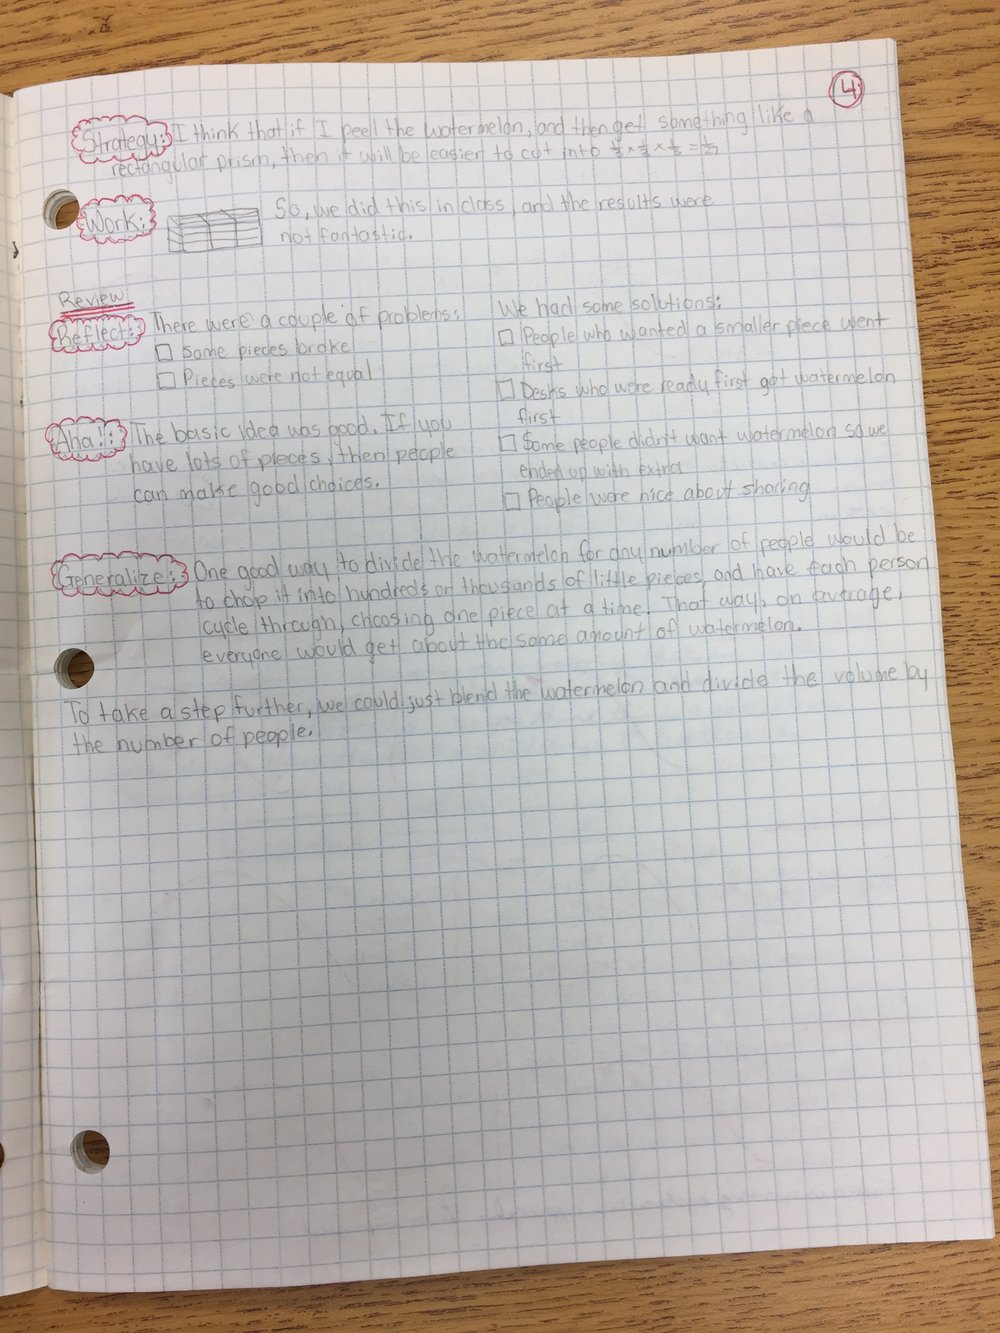 4
Strategy: I think that if I peel the watermelon, and then get something like a
rectangular prism, then it will be easier to cut into ⅓ × ⅓ × ⅓ = 1/27
Work: So, we did this in class, and the results were
not fantastic.
Review
Reflect: There were a couple of problems:
□ Some pieces broke
□ Pieces were not equal
Aha!: The basic idea was good. If you
have lots of pieces, then people
can make good choices.
We had some solutions:
□ People who wanted a smaller piece went
first
□ Desks who were ready first got watermelon
first
□ Some people didn't want watermelon so we
ended up with extra
□ People were nice about sharing
Generalize: One good way to divide the watermelon for any number of people would be
to chop it into hundreds or thousands of little pieces, and have each person
cycle through, choosing one piece at a time. That way, on average,
everyone would get about the same amount of watermelon.
To take a step further, we could just blend the watermelon and divide the volume by
the number of people.